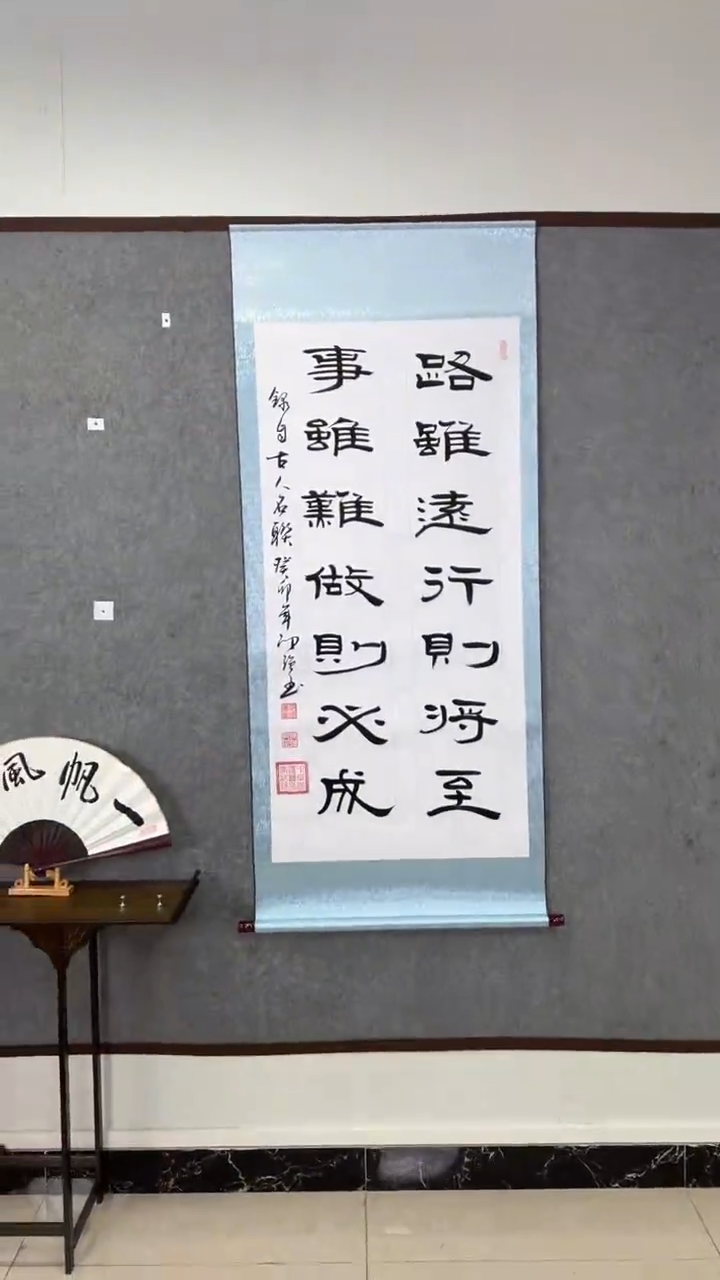 路雖遠行則將至
事雖難做則必成
錄自古人名聯癸卯年
一帆風